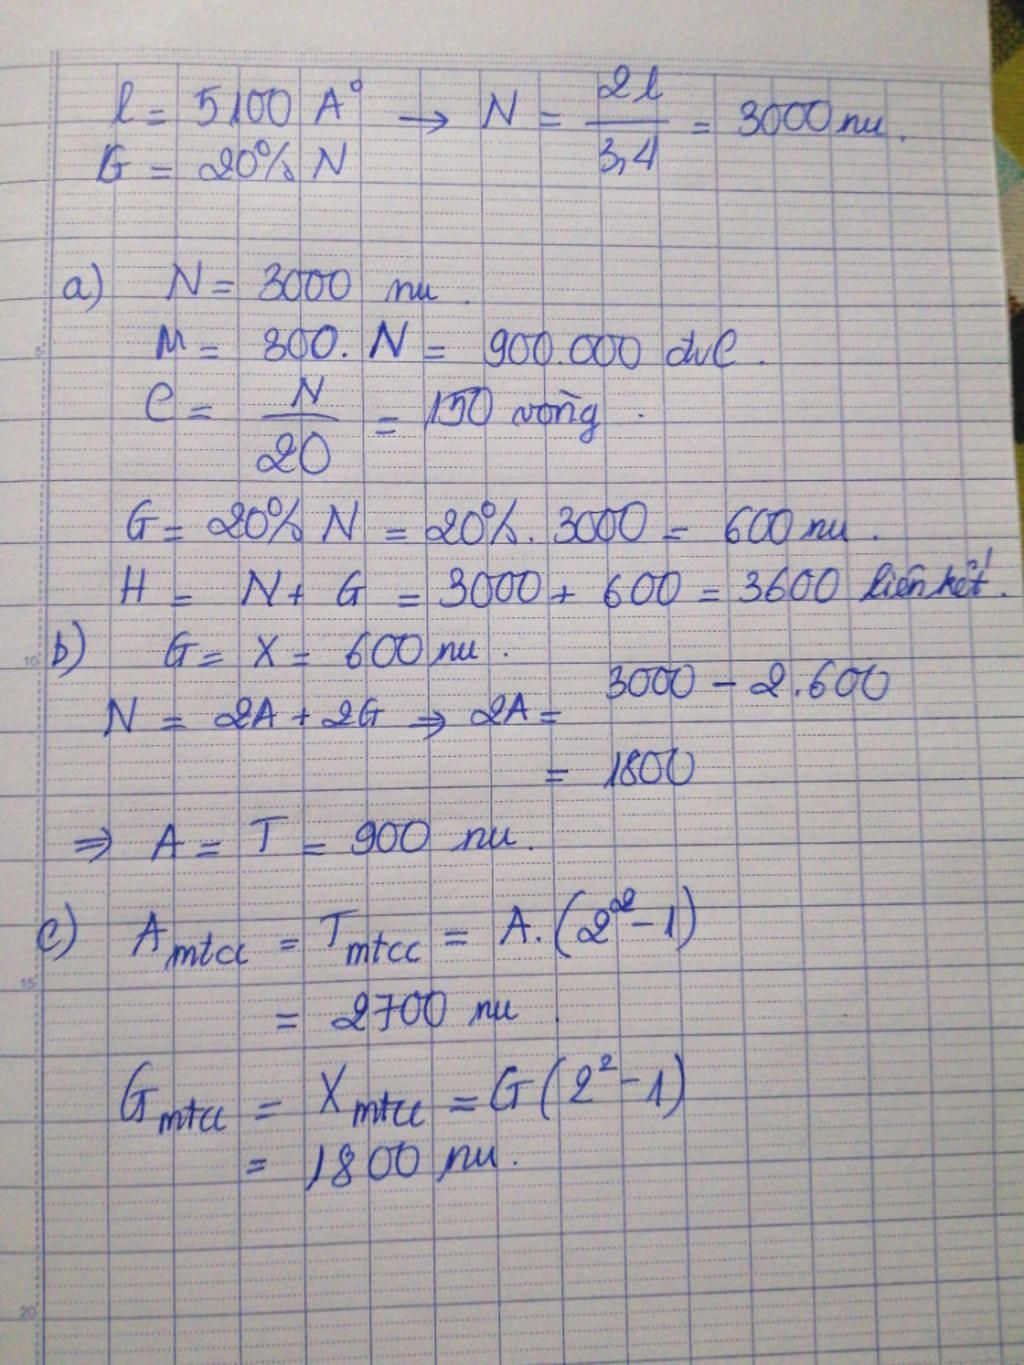 l = 5100 A° → N = 2l / 3,4 = 3000 nu.
G = 20% N
a) N = 3000 nu.
M = 300. N = 900.000 đvC.
C = N / 20 = 150 vòng.
G = 20% N = 20%. 3000 = 600 nu.
H = N + G = 3000 + 600 = 3600 liên kết.
b) G = X = 600 nu.
N = 2A + 2G ⇒ 2A = 3000 - 2.600
= 1800
⇒ A = T = 900 nu.
c) A mtcc = T mtcc = A. (2² - 1)
= 2700 nu.
G mtcc = X mtcc = G (2² - 1)
= 1800 nu.
5
10
15
20